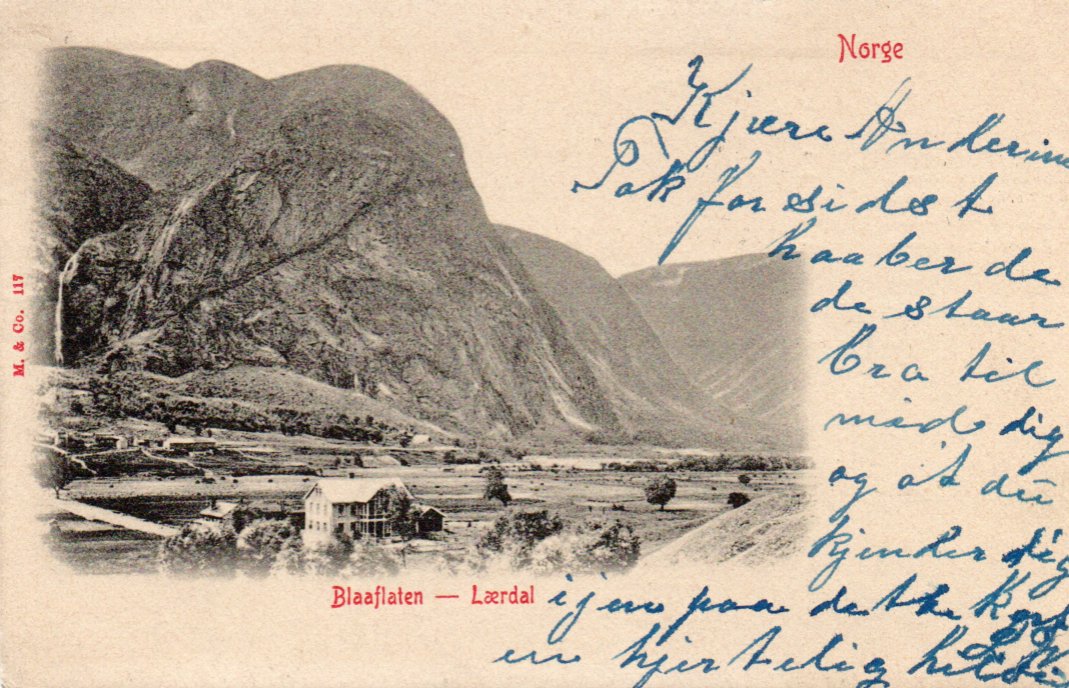 Norge
Kjære
Tak for sidst
haaber de
de staar
bra til
mäd dig
og åt dü
kjender dig
ijen paa dette Kort
en hjertelig
Blaaflaten — Lærdal
M. & Co. 117